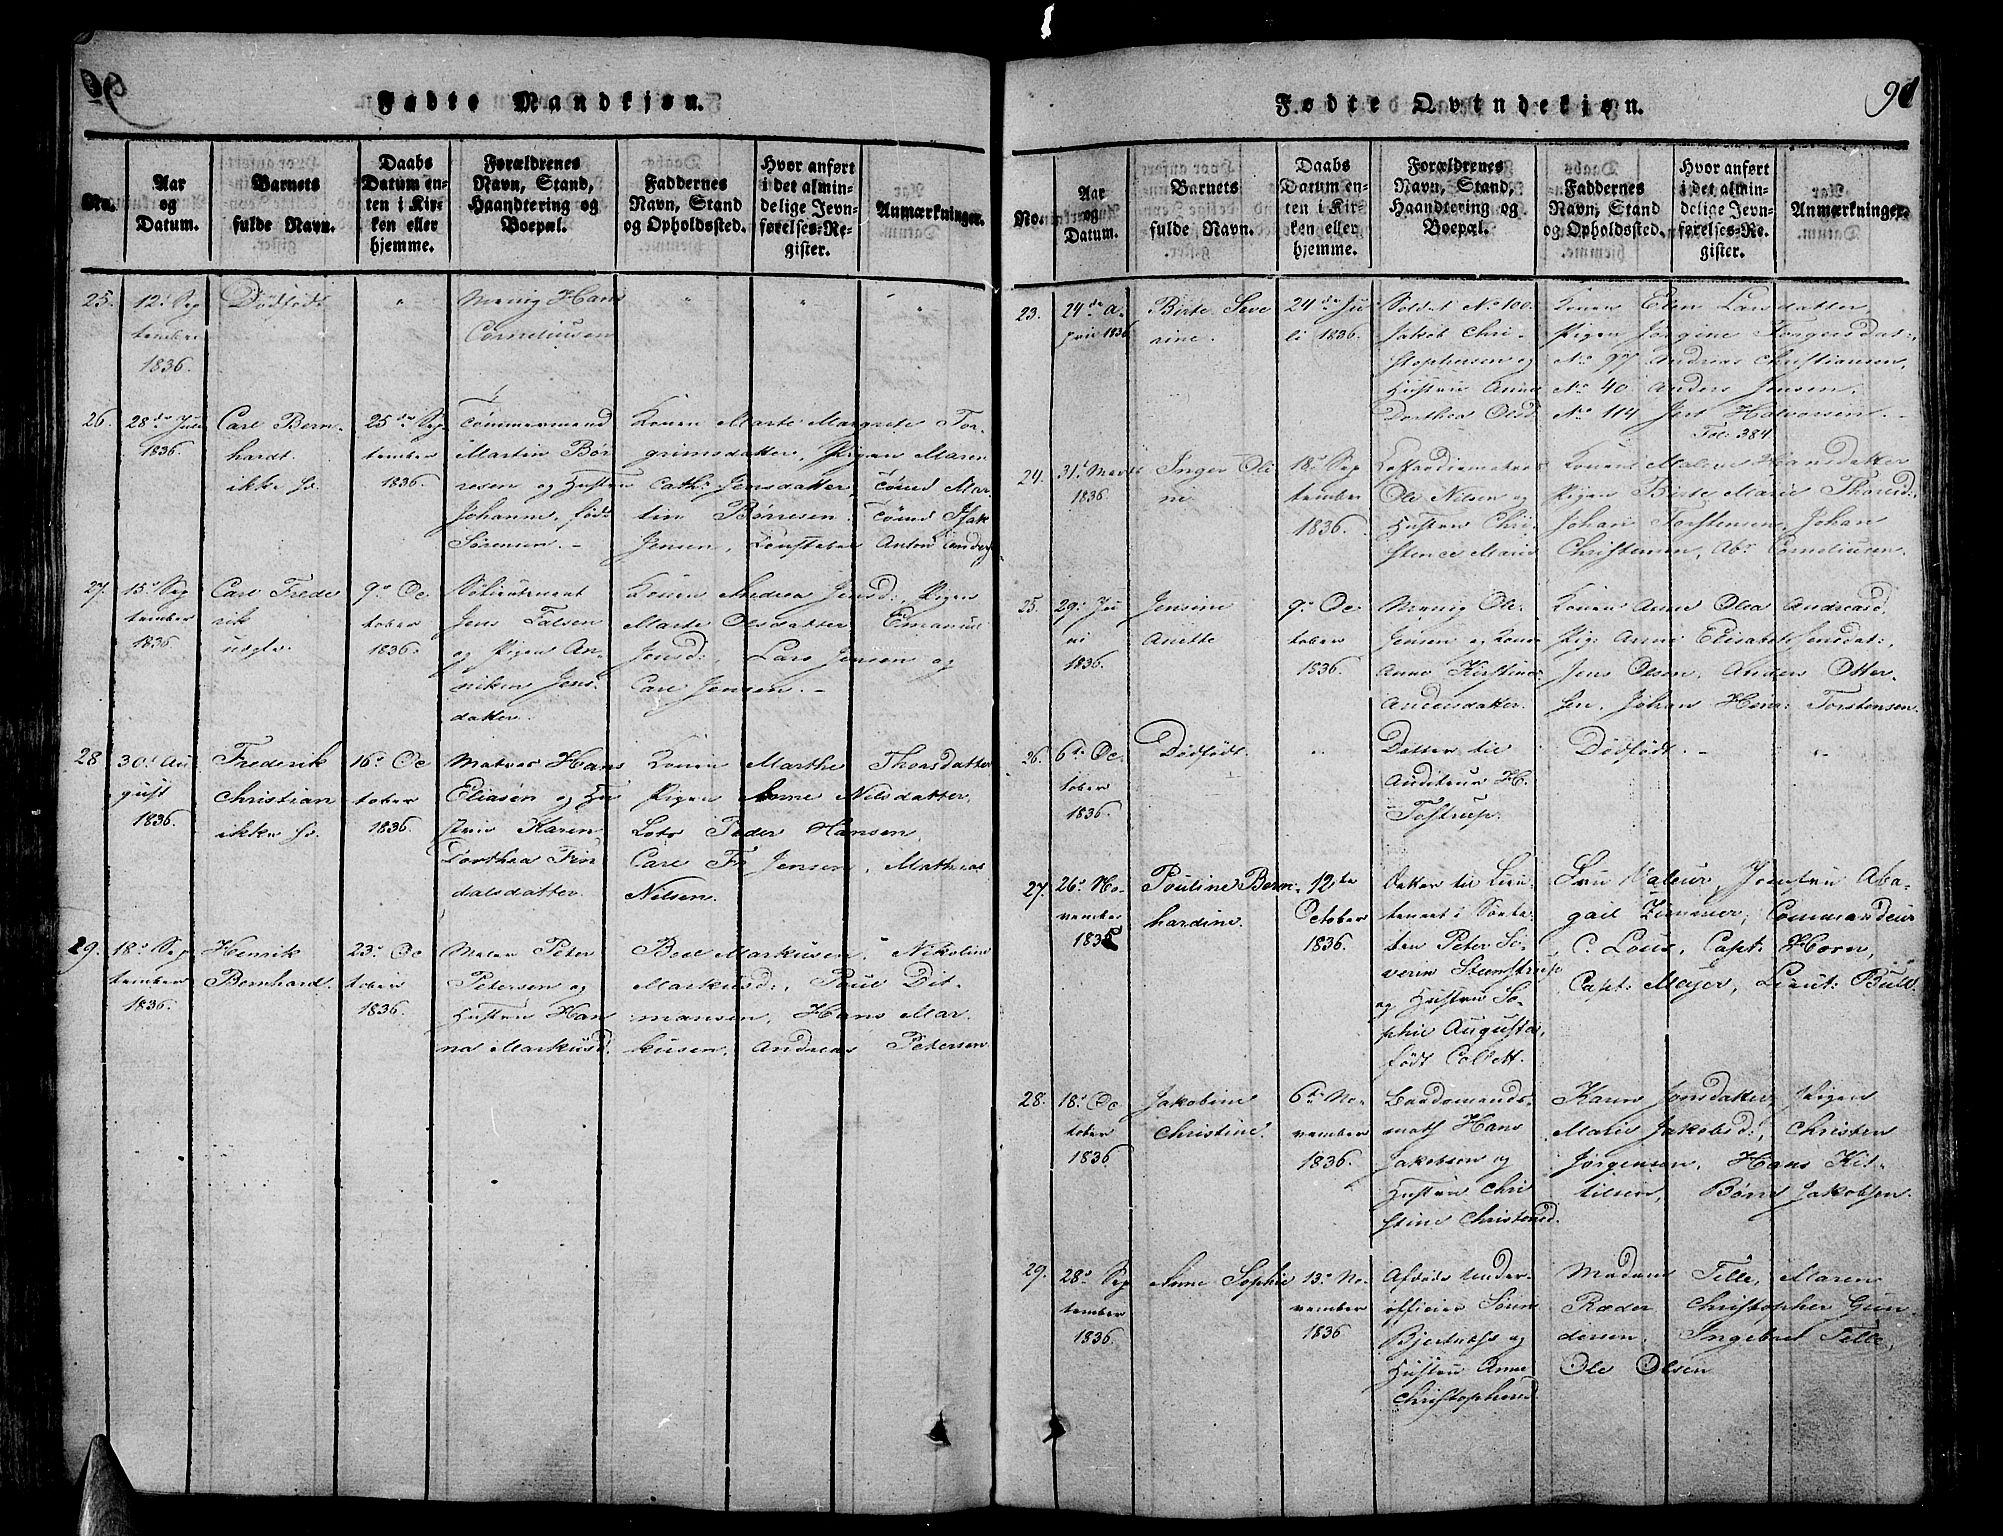 90
Fødte Mandkjøn.
No.
Aar
og
Datum.
Barnets
fulde Navn.
Daabs
Datum en-
ten i Kir-
ken eller
hjemme.
Forældrenes
Navn, Stand,
Haandtering og
Boepæl.
Faddernes
Navn, Stand
og Opholdssted.
Hvor anført
i det almin-
delige Jevn-
førelses-Re-
gister.
Anmærkninger.
25.
12. Sep
tember
1836.
Dødfødt
"
Menig Hans
Corneliusen
"
"
"
26.
28de Juli
1836.
Carl Bern-
hardt.
ikke hs.
25de Sep
tember
1836.
Tømmermand
Martin Bør-
resen og Hustru
Johanne, født
Sørensen. -
Konen Marte Margrete Tor-
grimsdatter, Pigen Maren
Cath: Jensdatter, Tømd Mar
tin Børresen. Tømd Isak
Jensen, Constabel Anton Anders
27.
15. Sep
tember
1836
Carl Frede
rik
uægte.
9. Oc
tober
1836.
Søelieutenant
Jens Falsen
og Pigen An-
niken Jens-
datter.
Konen Andrea Jensd:, Pigen
Marte Olsdatter Emanuel
Jensd:, Lars Jensen og
Carl Jensen. -
28
30. Au
gust
1836.
Frederik
Christian
ikke hs.
16. Oc
tober
1836.
Matros Hans
Eliasen og Hu
stru Karen
Dorthea Fin
dalsdatter.
Konen Marthe Thorsdatter
Pigen Anne Nilsdatter,
Lots Peder Hansen,
Carl Fr Jensen, Mathias
Nilsen.
29.
18. Sep
tember
1836.
Henrik
Bernhardt.
23. Oc
tober
1836.
Maler Peter
Petersen og
Hustru Han
na Markusd.
Bed Markusen, Nikoline
Markusd:, Poul Dit-
mansen, Hans Mar
kusen, Andreas Petersen.
91
Fødte Qvindekjøn.
No.
Aar
og
Datum.
Barnets
fulde Navn.
Daabs
Datum en-
ten i Kir-
ken eller
hjemme.
Forældrenes
Navn, Stand,
Haandtering og
Boepæl.
Faddernes
Navn, Stand
og Opholdssted.
Hvor anført
i det almin-
delige Jevn-
førelses-Re-
gister.
Anmærkninger.
23.
24de A-
pril 1836
Birte Seve
rine.
24de Ju
li 1836.
Soldat No 100.
Jakob Chri-
stophersen og
Hustru Anne
Dorthea Olsd.
Konen Elen Larsdatter,
Pigen Jørgine Torgersdat:,
No 97 Andreas Christiansen,
No 40 Anders Jensen,
No 114 Jert Halvorsen. -
Fol: 384
24.
31. Marts
1836.
Inger Oli
ne.
18. Sep
tember
1836.
Ole Nilsen og
Hustru Chri-
stence Marie
Konen Malene Hansdatter
Pigen Birte Marie Thorsd:,
Johan Torstensen, Johan
Christensen, Abr Corneliusen.
25.
29. Ju
ni
1836.
Jensine
Anette
9. Oc
tober
1836.
Menig Ole
Jensen og Kone
Anne Kirstine
Andersdatter.
Konen Anne Olea Andreasd,
Pig: Anne Elisabet Jensdat:,
Jens Olsen, Anders Otter-
sen, Johan Hen: Torstensen.
26.
6te Oc-
tober
1836.
Dødfødt.
"
Datter til
Auditeur H.
Tostrup.
Dødfødt. -
"
27.
26. No-
vember
1835
Pouline Bern-
hardine.
12te
October
1836.
Datter til Lieu-
tenant i Søeta-
ten Peter Se-
verin Steenstrup
og Hustru So-
phie Augusta,
født Collett.
Fru Valeur, Jomfru Aba-
gail Zimmer, Commandeur
C. Lous, Capt: Horn,
Capt: Meyer, Lieut: Bull.
28.
18. Oc
tober
1836
Jakobine
Christine.
6te No-
vember
1836.
Baadsmands-
math Hans
Jakobsen og
Hustru Chri
stine Christensd.
Karen Jonsdatter, Pigen
Maris Jakobsd:, Christen
Jørgensen, Hans Kit-
tilsen, Børre Jakobsen.
29.
28. Sep
tember
1836.
Anne Sophie
13. No-
vember
1836
Afdøde Under-
officier Søren
Bjertnæss og
Hustru Anne
Christophersd.
Madam Telle, Maren
Ræder Christopher Gun-
dersen. Ingebret Telle,
Ole Olsen